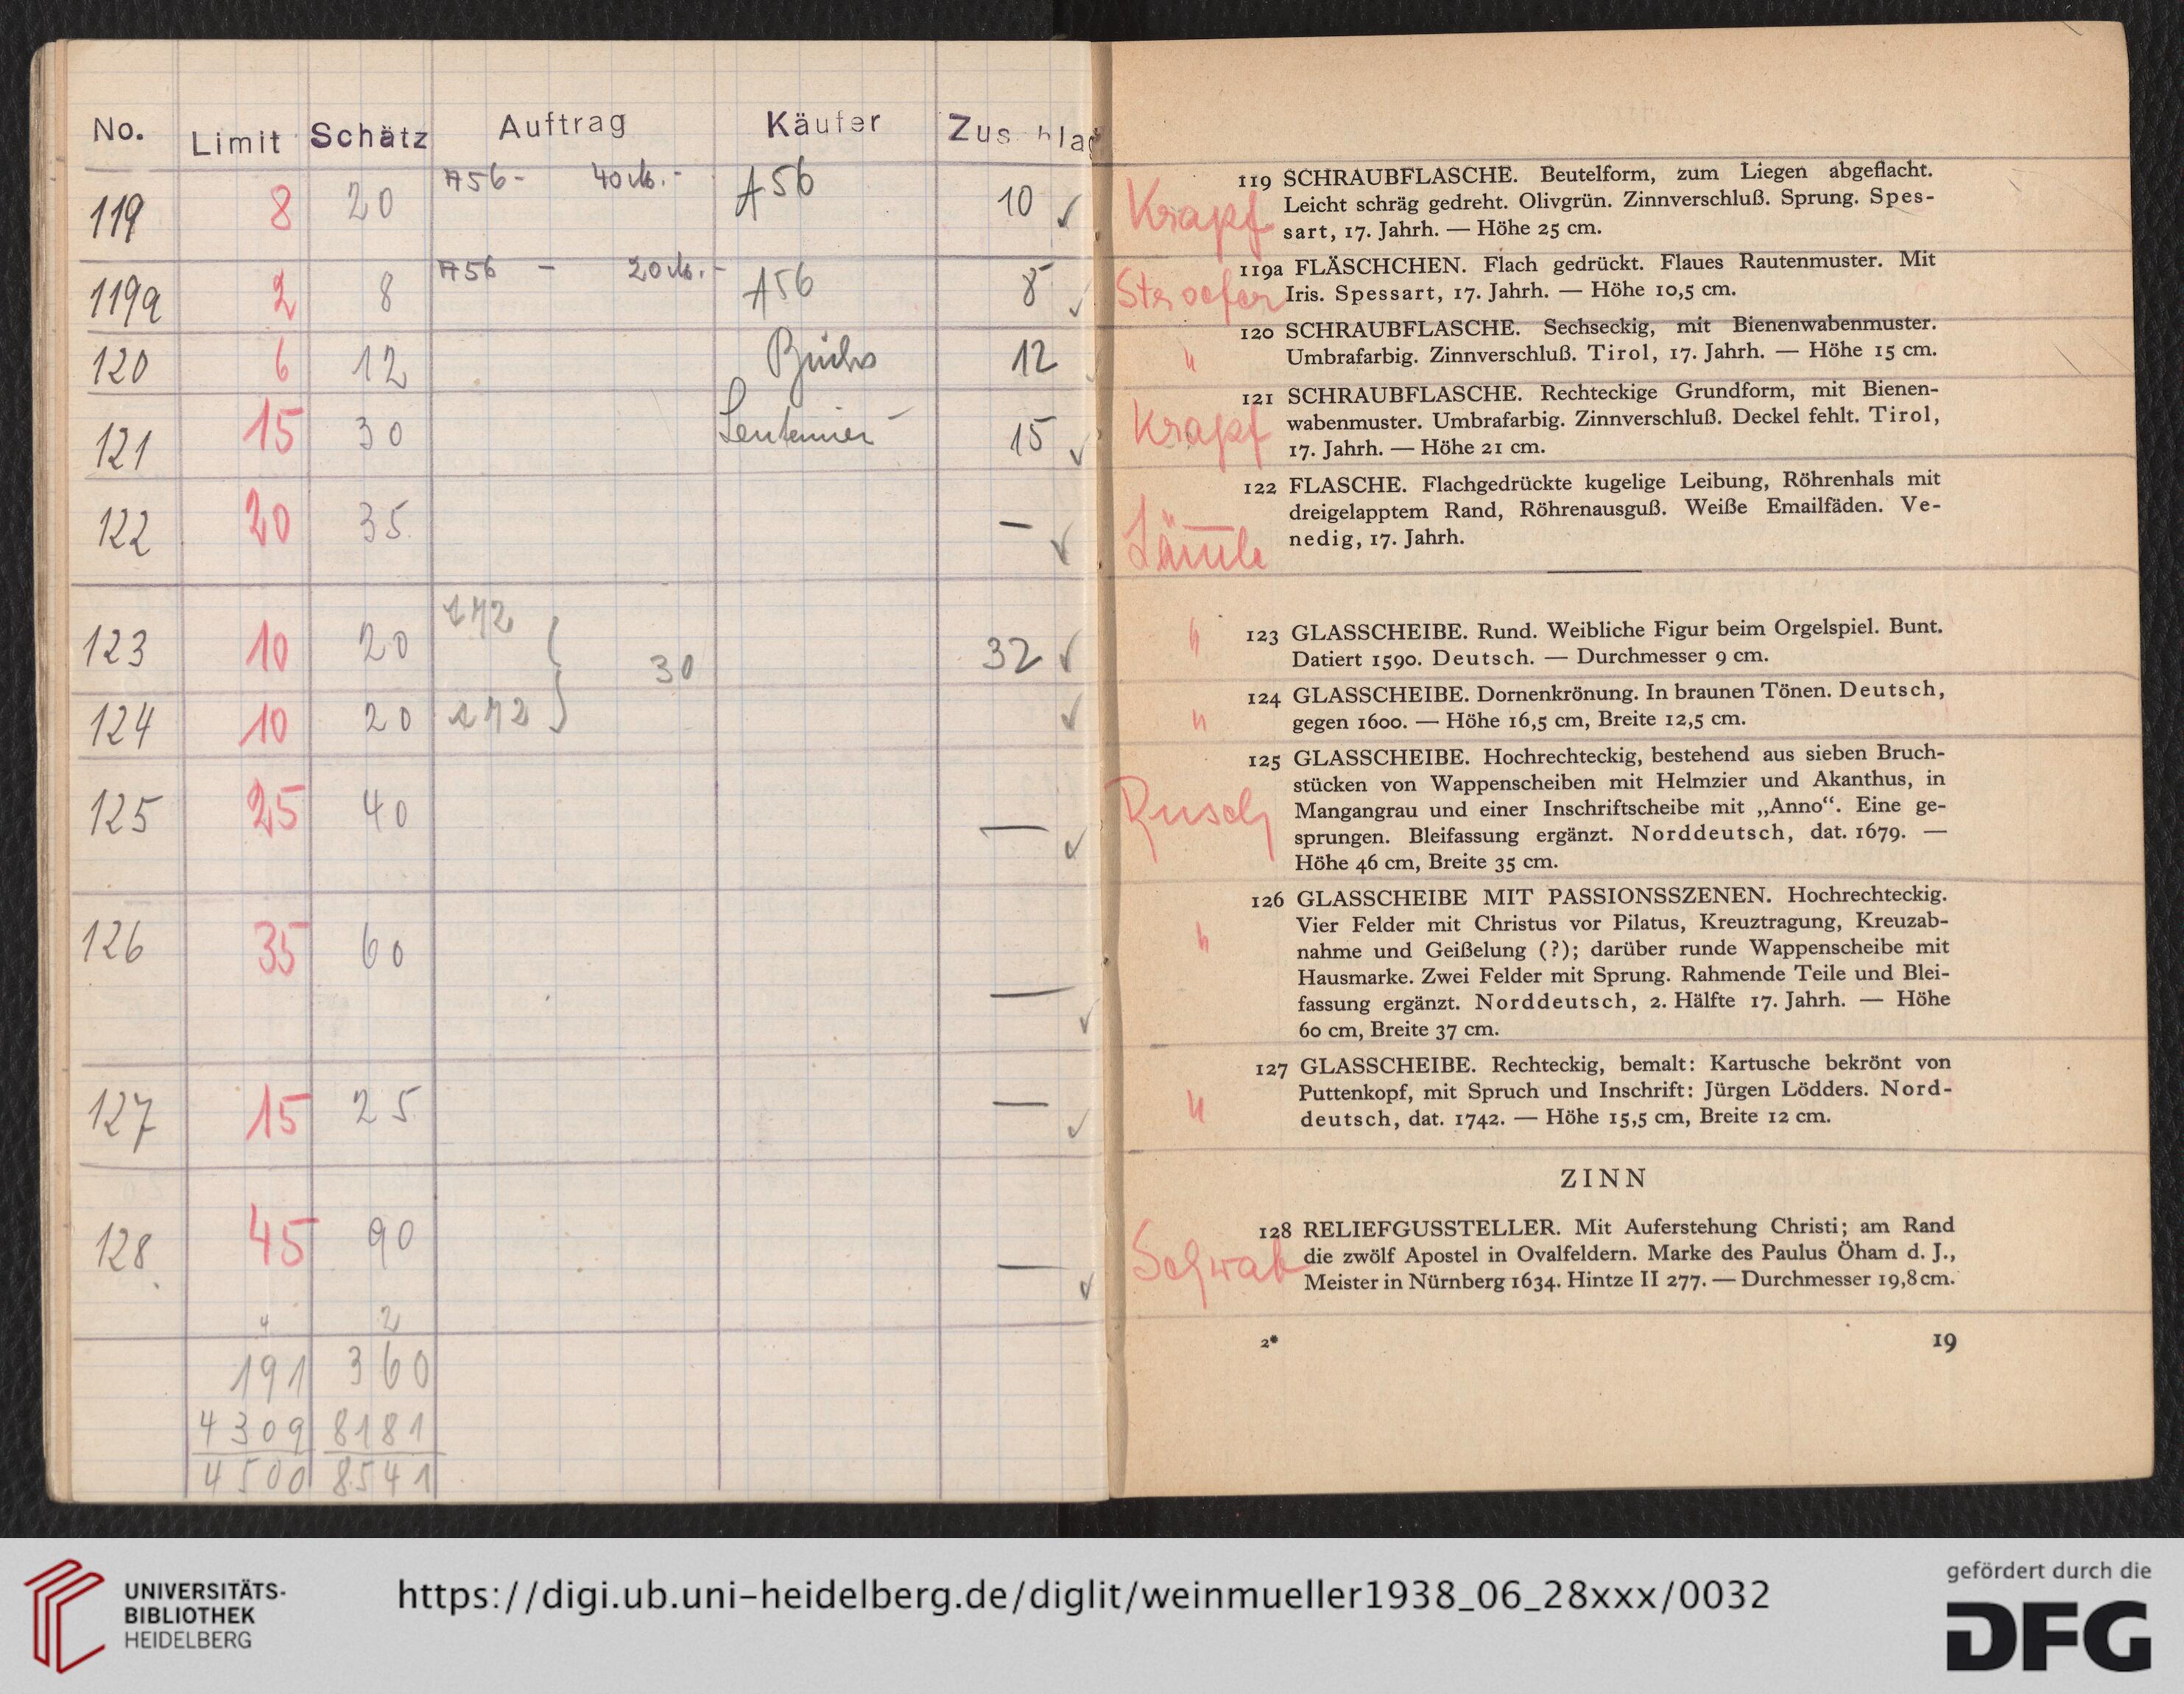 No. Limit Schätz Auftrag Käufer Zus hlag
119 8 20 A56 - 40 M.- A56 10 ✓
119a 2 8 A56 - 20 M.- A56 8 ✓
120 6 12 12
121 15 30 15 ✓
122 20 35 — ✓
123 10 20 172 30 32 ✓
124 10 20 172 ✓
125 25 40 — ✓
126 35 60 — ✓
127 15 25 — ✓
128 45 90 — ✓
4 2
191 360
4309 8181
4500 8541
Krapf
119 SCHRAUBFLASCHE. Beutelform, zum Liegen abgeflacht.
Leicht schräg gedreht. Olivgrün. Zinnverschluß. Sprung. Spes-
sart, 17. Jahrh. — Höhe 25 cm.
119a FLÄSCHCHEN. Flach gedrückt. Flaues Rautenmuster. Mit
Iris. Spessart, 17. Jahrh. — Höhe 10,5 cm.
"
120 SCHRAUBFLASCHE. Sechseckig, mit Bienenwabenmuster.
Umbrafarbig. Zinnverschluß. Tirol, 17. Jahrh. — Höhe 15 cm.
Krapf
121 SCHRAUBFLASCHE. Rechteckige Grundform, mit Bienen-
wabenmuster. Umbrafarbig. Zinnverschluß. Deckel fehlt. Tirol,
17. Jahrh. — Höhe 21 cm.
122 FLASCHE. Flachgedrückte kugelige Leibung, Röhrenhals mit
dreigelapptem Rand, Röhrenausguß. Weiße Emailfäden. Ve-
nedig, 17. Jahrh.
"
123 GLASSCHEIBE. Rund. Weibliche Figur beim Orgelspiel. Bunt.
Datiert 1590. Deutsch. — Durchmesser 9 cm.
"
124 GLASSCHEIBE. Dornenkrönung. In braunen Tönen. Deutsch,
gegen 1600. — Höhe 16,5 cm, Breite 12,5 cm.
Rusch
125 GLASSCHEIBE. Hochrechteckig, bestehend aus sieben Bruch-
stücken von Wappenscheiben mit Helmzier und Akanthus, in
Mangangrau und einer Inschriftscheibe mit „Anno“. Eine ge-
sprungen. Bleifassung ergänzt. Norddeutsch, dat. 1679. —
Höhe 46 cm, Breite 35 cm.
"
126 GLASSCHEIBE MIT PASSIONSSZENEN. Hochrechteckig.
Vier Felder mit Christus vor Pilatus, Kreuztragung, Kreuzab-
nahme und Geißelung (?); darüber runde Wappenscheibe mit
Hausmarke. Zwei Felder mit Sprung. Rahmende Teile und Blei-
fassung ergänzt. Norddeutsch, 2. Hälfte 17. Jahrh. — Höhe
60 cm, Breite 37 cm.
"
127 GLASSCHEIBE. Rechteckig, bemalt: Kartusche bekrönt von
Puttenkopf, mit Spruch und Inschrift: Jürgen Lödders. Nord-
deutsch, dat. 1742. — Höhe 15,5 cm, Breite 12 cm.
ZINN
Schwab
128 RELIEFGUSSTELLER. Mit Auferstehung Christi; am Rand
die zwölf Apostel in Ovalfeldern. Marke des Paulus Öham d. J.,
Meister in Nürnberg 1634. Hintze II 277. — Durchmesser 19,8 cm.
2*
19
UNIVERSITÄTS-
BIBLIOTHEK
HEIDELBERG
https://digi.ub.uni-heidelberg.de/diglit/weinmueller1938_06_28xxx/0032
gefördert durch die
DFG